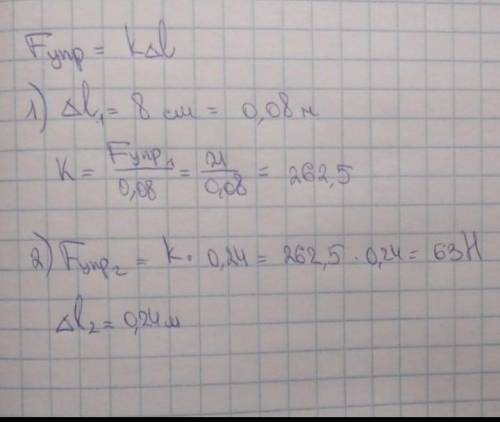 Fупр = kΔl
1) Δl₁ = 8 см = 0,08 м
K = Fупр₁/0,08 = 21/0,08 = 262,5
2) Fупр₂ = K · 0,24 = 262,5 · 0,24 = 63Н
Δl₂ = 0,24 м